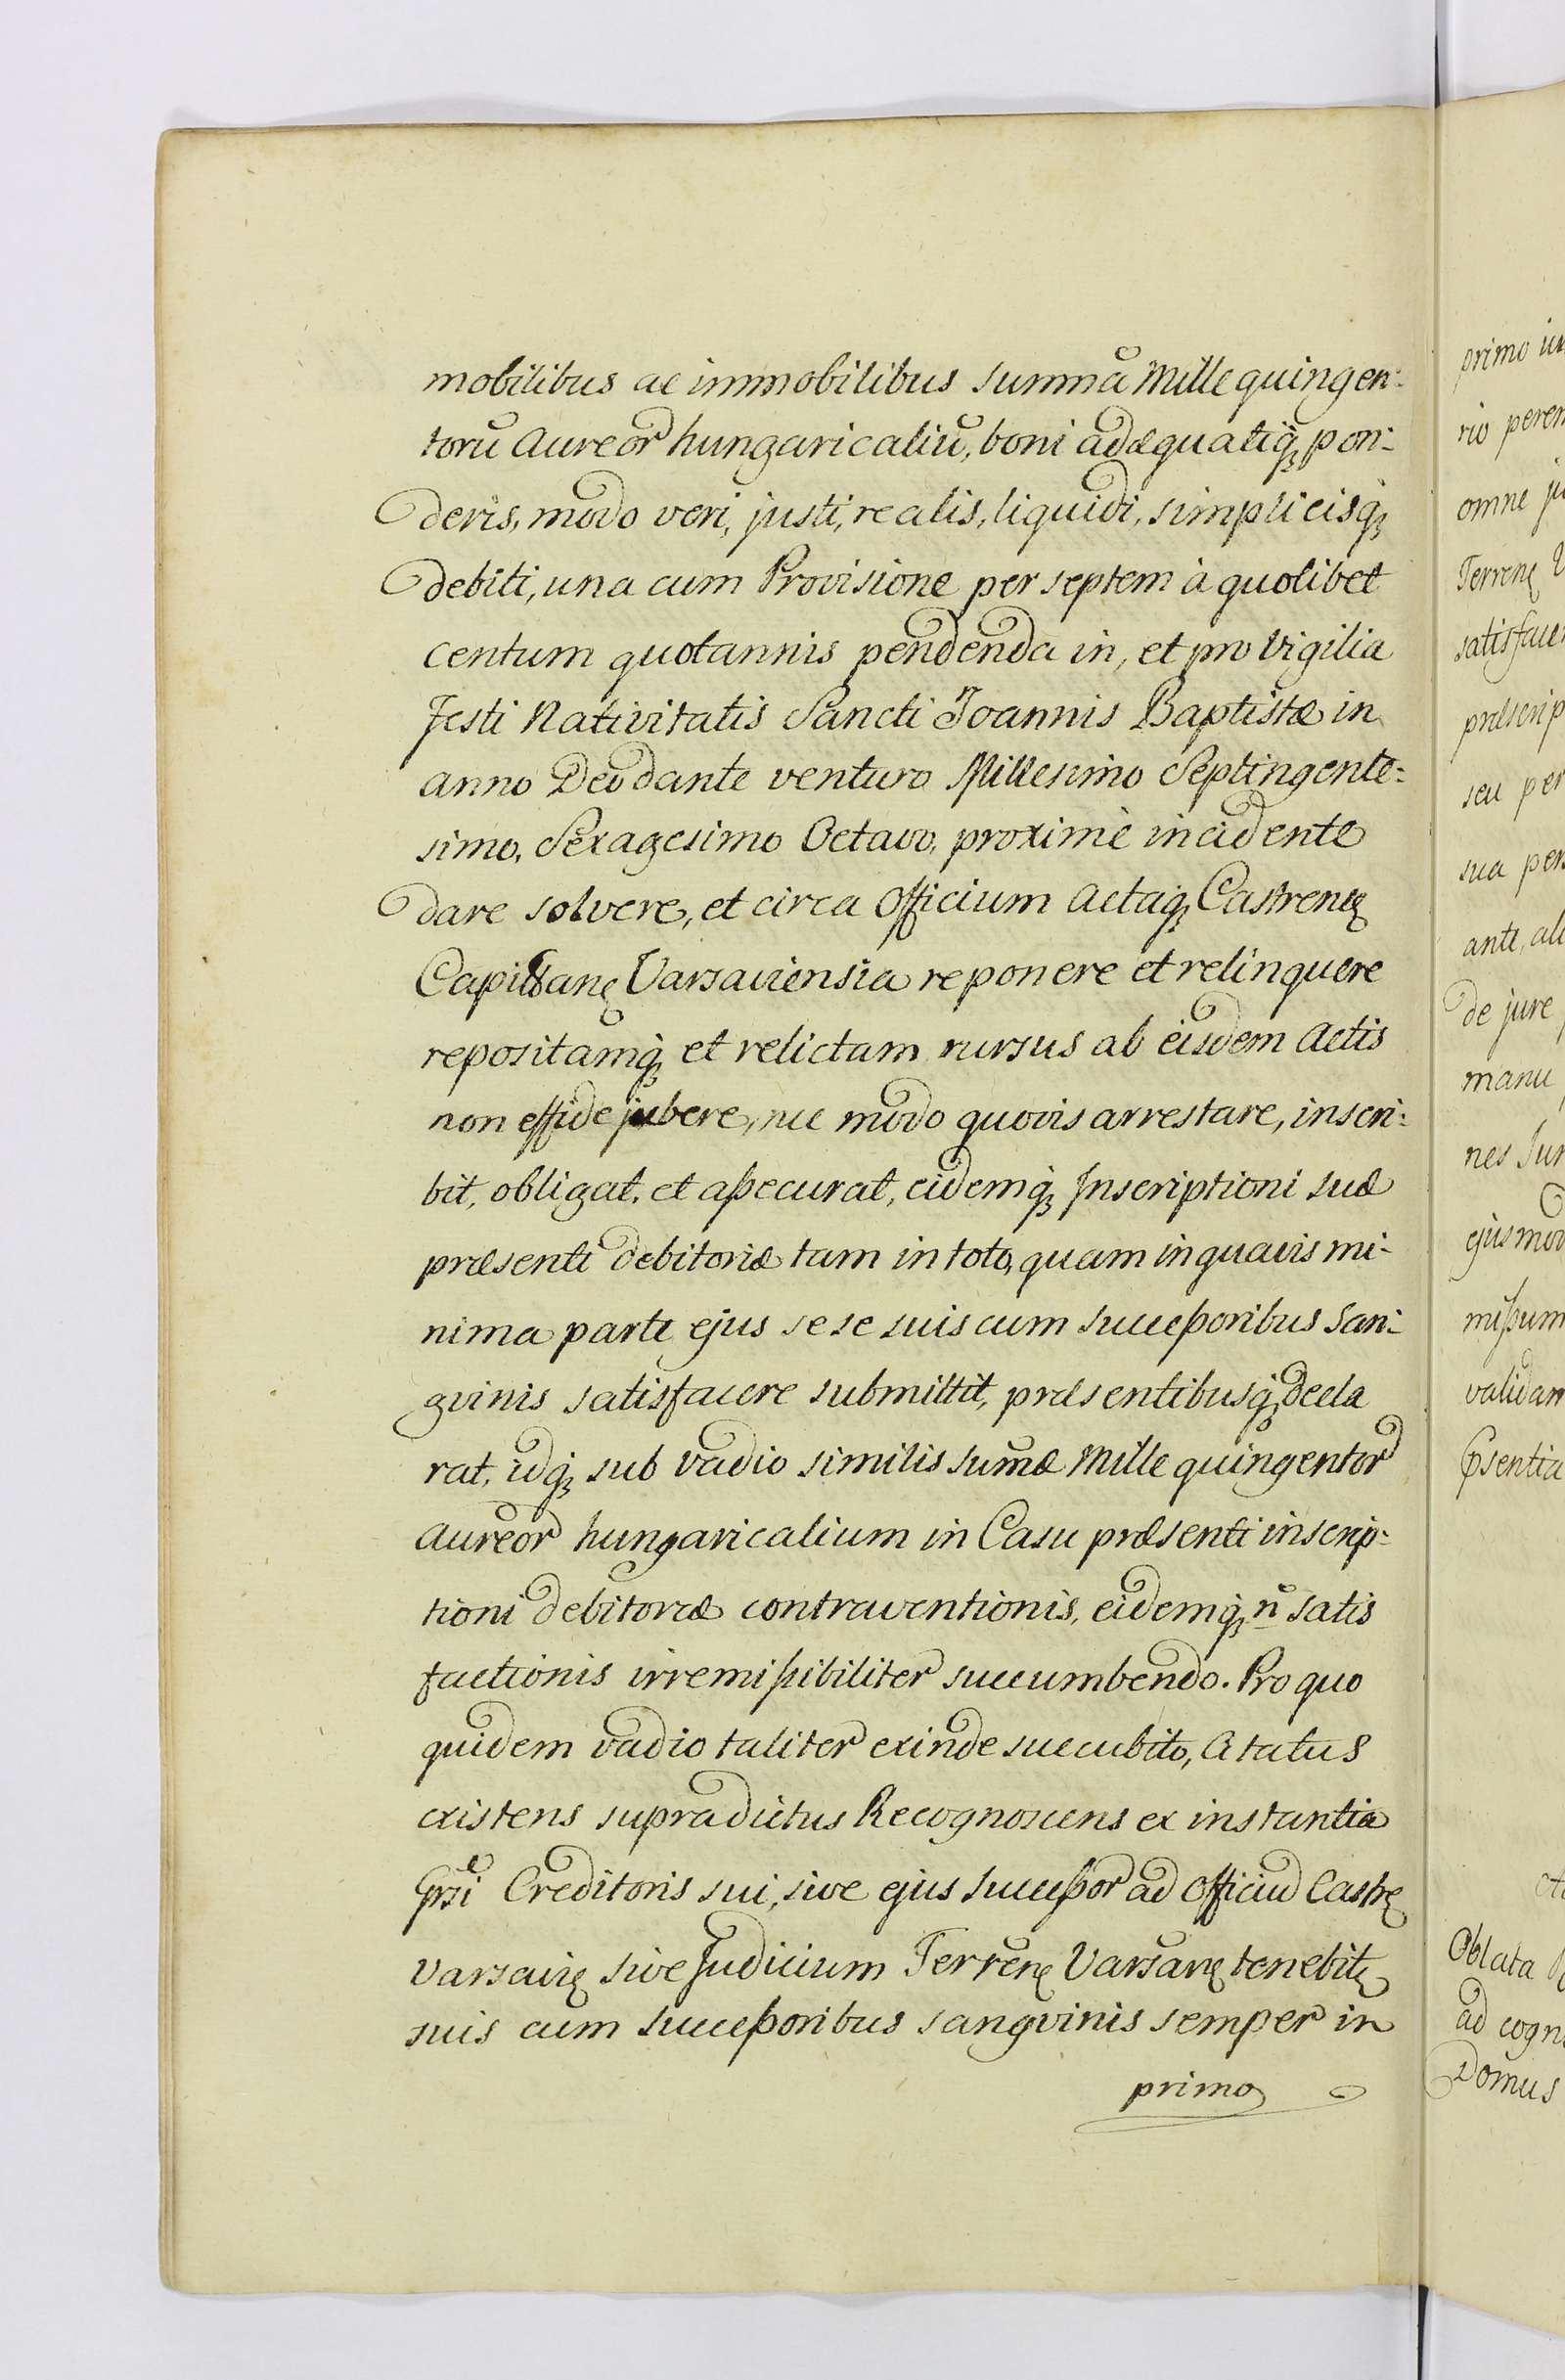 mobilibus ac immobilibus Summā Mille quingen:
torū Aureor hungaricaliū, boni adæquatiq́ꝫ pon:
deris, modo veri, justi, realis, liquidi, simplicisq́ꝫ
debiti, una cum Provisione per septem à quolibet
centum quotannis pendenda in, et pro Vigilia
Festi Nativitatis Sancti Joannis Baptistæ in
anno Deo dante venturo Millesimo Septingente:
simo, Sexagesimo Octavo, proximè incidente
dare solvere, et circa Officium Actaq́ꝫ Castrenę
Capitanę Varsaviensia reponere et relinquere
repositamq́ꝫ et relictam rursus ab eisdem Actis
non effidejubere, nec modo quovis arrestare, inscri:
bit, obligat, et aßecurat, eidemq́ꝫ Inscriptioni suæ
præsenti debitoriæ tam in toto, quam in quavis mi:
nima parte ejus sese suis cum Succeßoribus San:
gvinis satisfacere submittit, præsentibusq́ꝫ decla
rat, idq́ꝫ sub vadio similis sum̄æ Mille quingentor
Aureor hungaricalium in Casu præsenti inscrip:
tioni debitoriæ contraventionis, eidemq́ꝫ n̄ satis
factionis irremißibiliter succumbendo. Pro quo
quidem vadio taliter exinde succubito, Citatus
existens supradictus Recognoscens ex instantia
Creditoris sui, sive ejus Succeßor ad Officiū Castrę
Varsavię sive Judicium Terrenę Varsavę tenebitꝫ
suis cum Succeßoribus sangvinis semper in
primo
primo
rio peren
omne
Terrenę
satisface
præscrip
seu per
sua per
ante,
de jure
manu
nes
ejusmo
mißum
validam
Oblata
ad
Domus